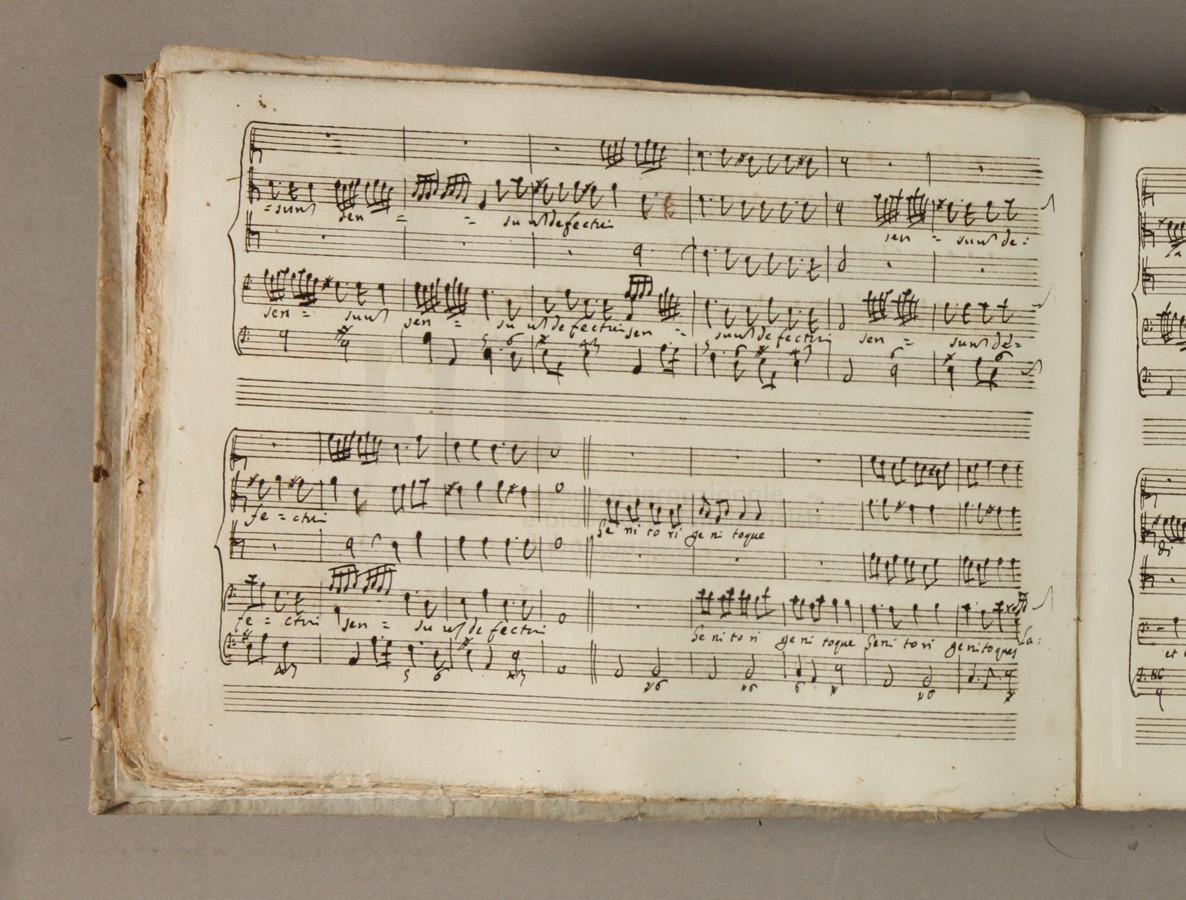 =suum sen = = suum defectui sen = suum de:
sen = suum sen = suum defectui sen = suum defectui sen = suum de=
fe = ctui Genitori genitoque
fe = ctui sen = suum defectui Genitori genitoque Genitori genitoque La: